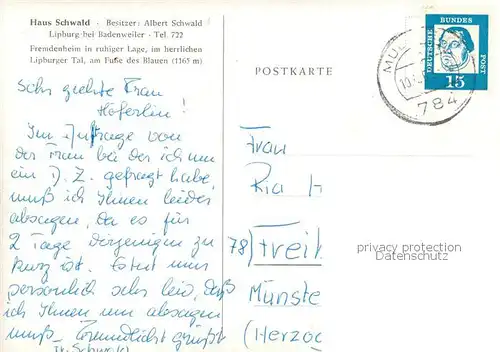 Haus Schwald - Besitzer: Albert Schwald
Lipburg bei Badenweiler - Tel. 722
Fremdenheim in ruhiger Lage, im herrlichen
Lipburger Tal, am Fuße des Blauen (1165 m)
POSTKARTE
DEUTSCHE BUNDES POST
15
MÜL
10.
784
Sehr geehrte Frau
Höferlin!
Im Auftrage von
der Frau bei der ich um
ein D. Z. gefragt habe,
muß ich Ihnen leider
absagen, da es für
2 Tage diejenigen zu
kurz ist. Es tut mir
persönlich sehr leid, daß
ich Ihnen nun absagen
muß. Freundlichst grüßt
Fr. Schwald
Frau
Ria H
78) Freib
Münste
(Herzog
privacy protection
Datenschutz